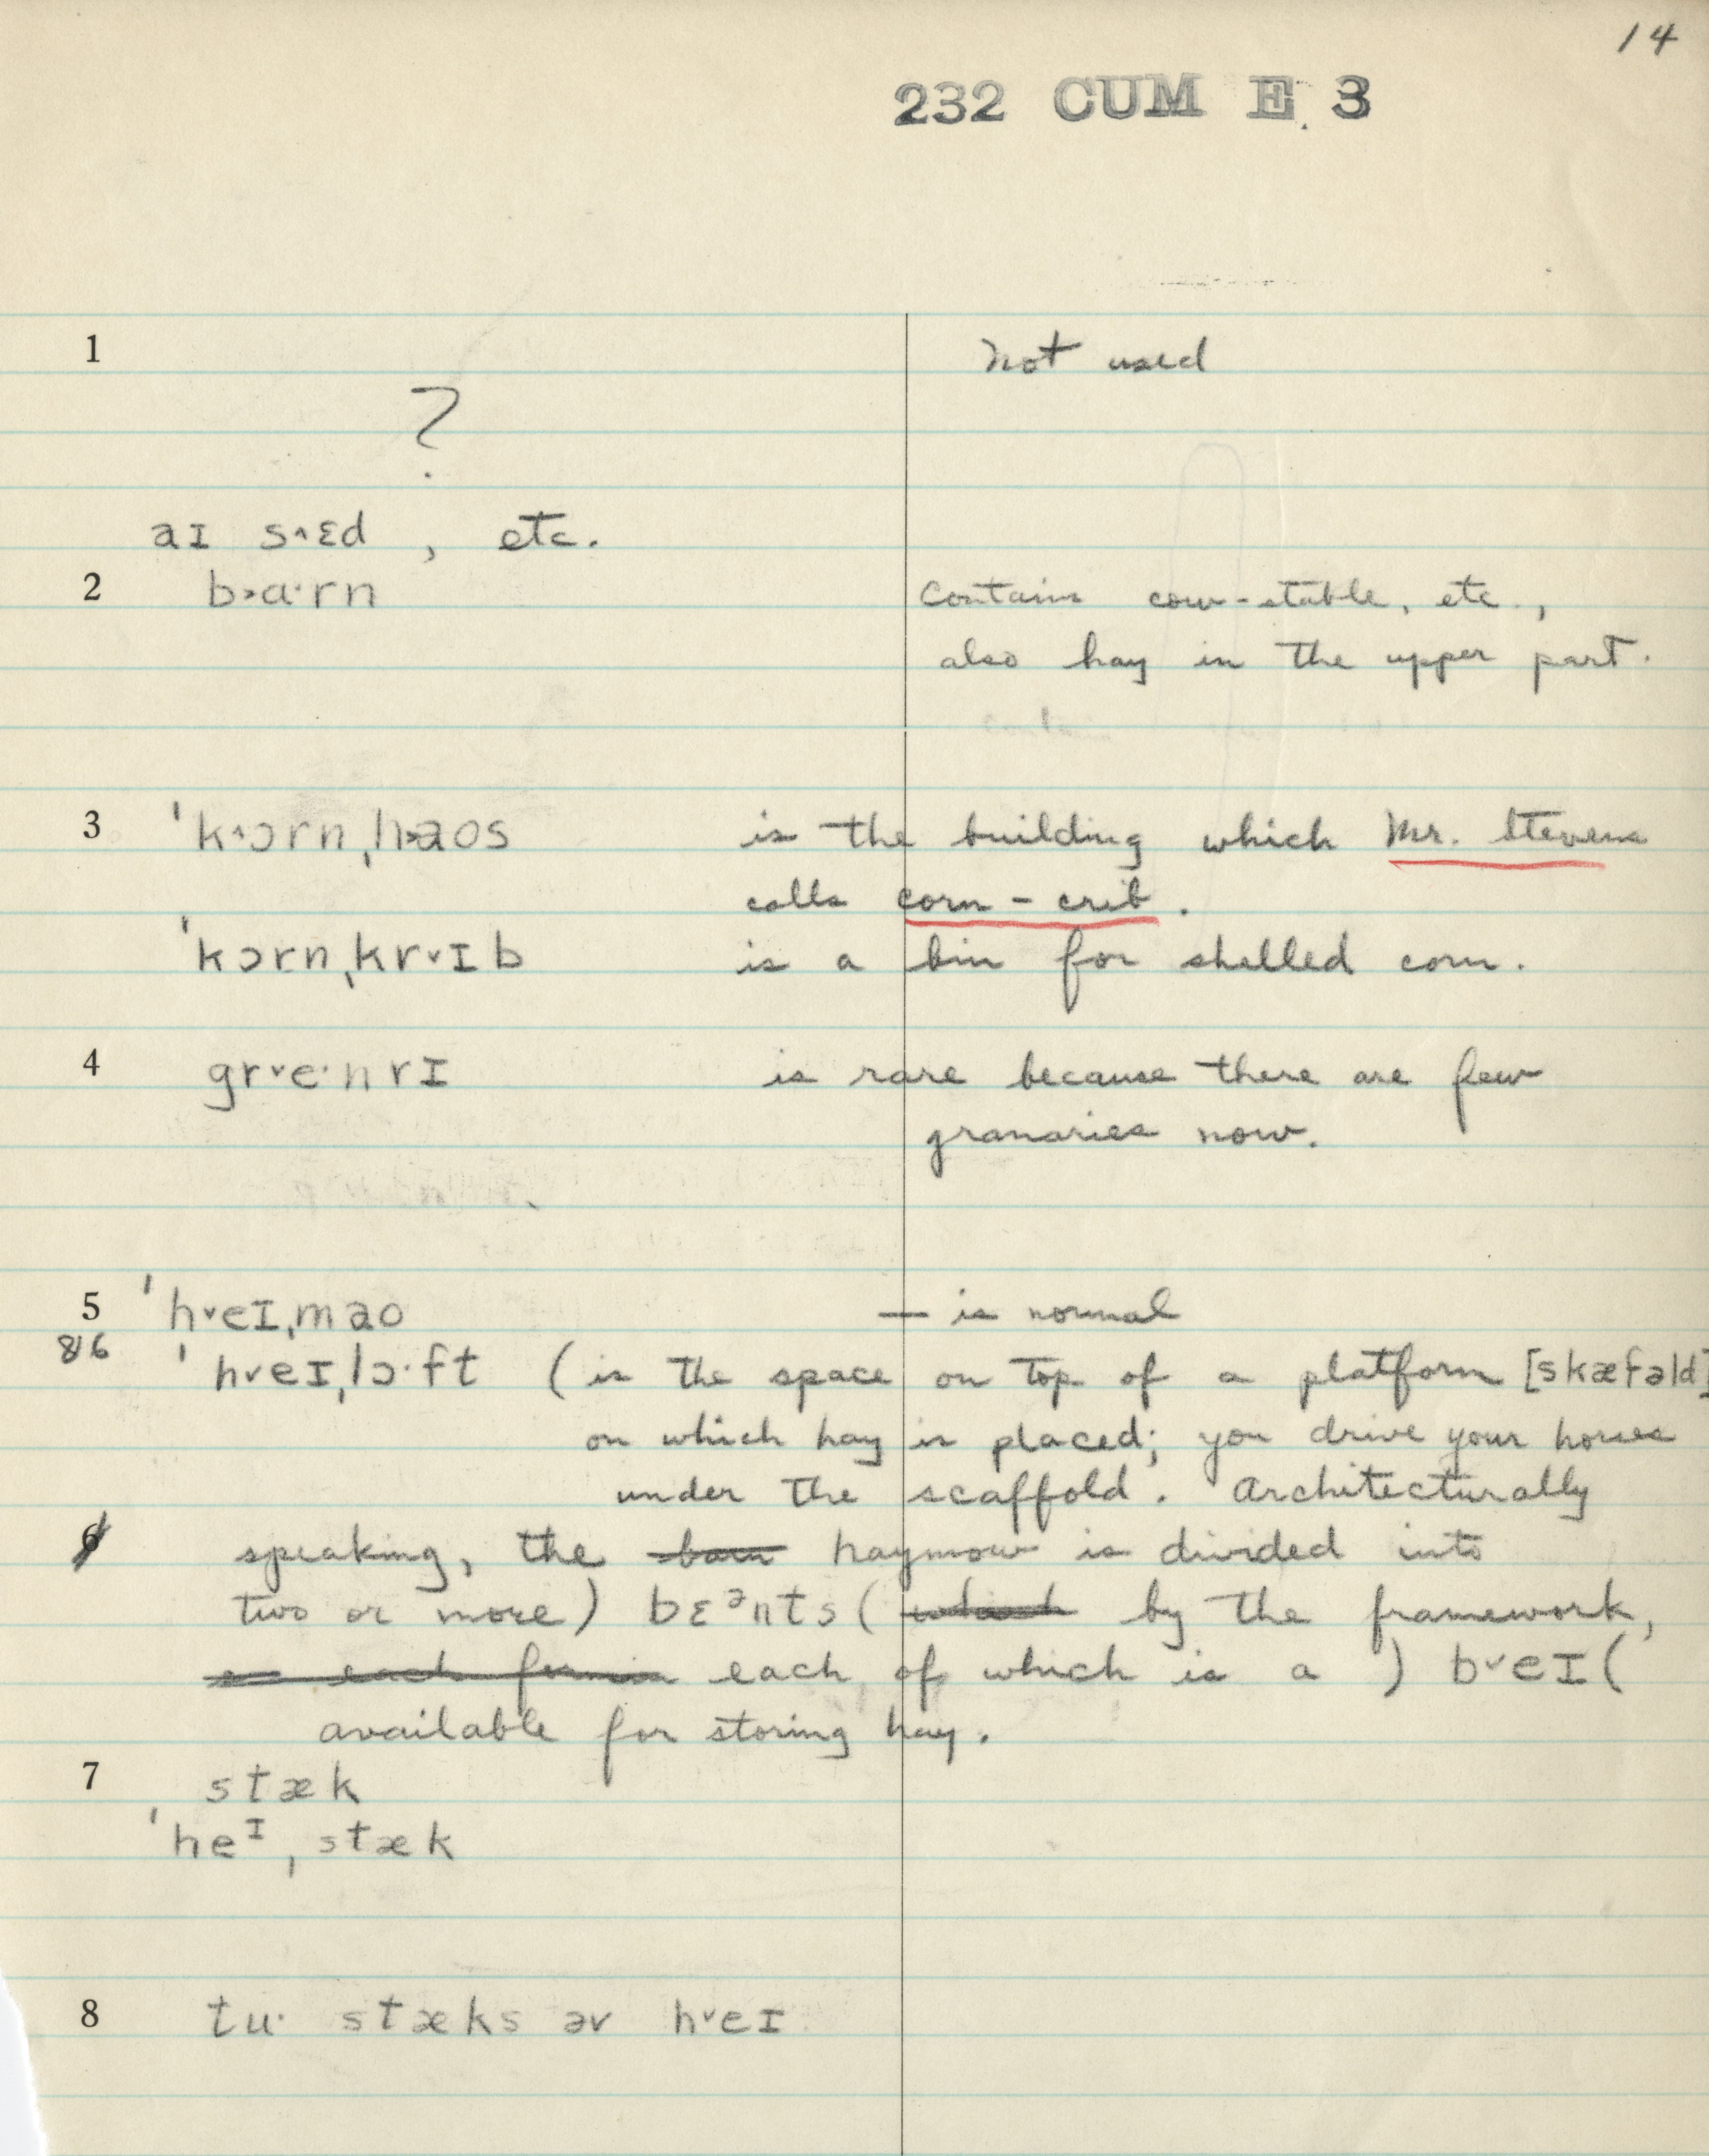 14
232 CUM E 3
1 Not used
?
aɪ s˄ɛd , etc.
2 b˃a·rn Contains cow-stable, etc.,
also hay in the upper part.
3 ˈk˄ɔrnˌh˃aos is the building which Mr. Stevens
calls corn-crib.
ˈkɔrnˌkr˅ɪb is a bin for shelled corn.
4 gr˅e·nrɪ is rare because there are few
granaries now.
5 ˈh˅eɪˌmao — is normal
&6 ˈh˅eɪˌlɔ·ft (is the space on top of a platform [skæfəld]
on which hay is placed; you drive your horses
under the scaffold. Architecturally
6 speaking, the barn haymow is divided into
two or more) bɛᵊnts ( which by the framework,
each of which is a ) b˅eɪ (
available for storing hay.
7 stæk
ˈheᴵˌstæk
8 tu· stæks əv h˅eɪ